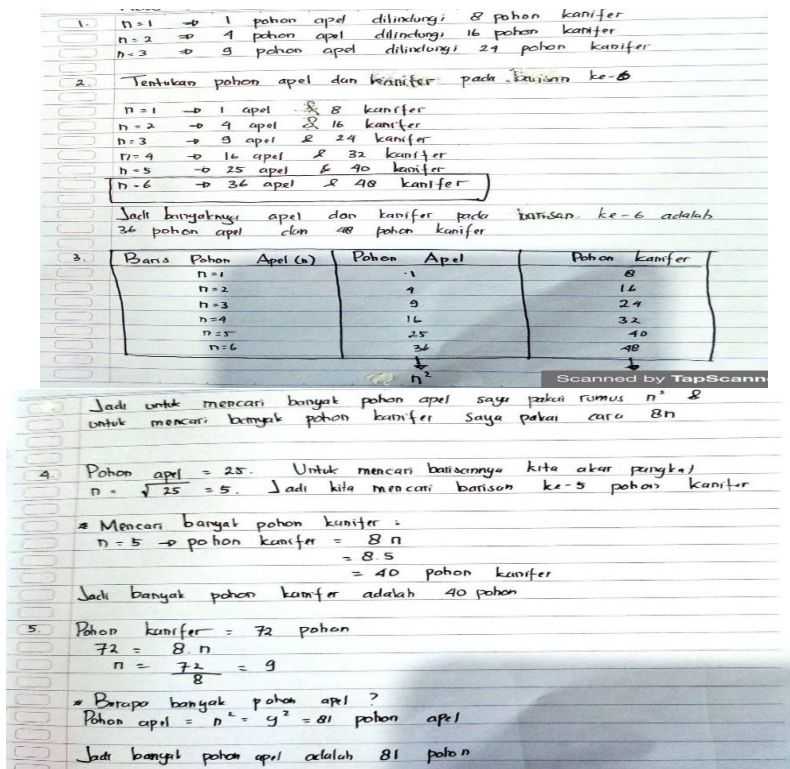 1. n = 1 → 1 pohon apel dilindungi 8 pohon kanifer
n = 2 → 4 pohon apel dilindungi 16 pohon kanifer
n = 3 → 9 pohon apel dilindungi 24 pohon kanifer
2. Tentukan pohon apel dan kanifer pada barisan ke-6
n = 1 → 1 apel & 8 kanifer
n = 2 → 4 apel & 16 kanifer
n = 3 → 9 apel & 24 kanifer
n = 4 → 16 apel & 32 kanifer
n = 5 → 25 apel & 40 kanifer
n = 6 → 36 apel & 48 kanifer
Jadi banyaknya apel dan kanifer pada barisan ke-6 adalah
36 pohon apel dan 48 pohon kanifer
3. Baris Pohon Apel (n) Pohon Apel Pohon kanifer
n = 1 1 8
n = 2 4 16
n = 3 9 24
n = 4 16 32
n = 5 25 40
n = 6 36 48
↓ ↓
n²
Scanned by TapScann
Jadi untuk mencari banyak pohon apel saya pakai rumus n² &
untuk mencari banyak pohon kanifer saya pakai cara 8n
4. Pohon apel = 25. Untuk mencari barisannya kita akar pangkat
n = √25 = 5. Jadi kita mencari barisan ke-5 pohon kanifer
* Mencari banyak pohon kanifer :
n = 5 → pohon kanifer = 8n
= 8.5
= 40 pohon kanifer
Jadi banyak pohon kanifer adalah 40 pohon
5. Pohon kanifer = 72 pohon
72 = 8.n
n = 72/8 = 9
* Berapa banyak pohon apel ?
Pohon apel = n² = 9² = 81 pohon apel
Jadi banyak pohon apel adalah 81 pohon